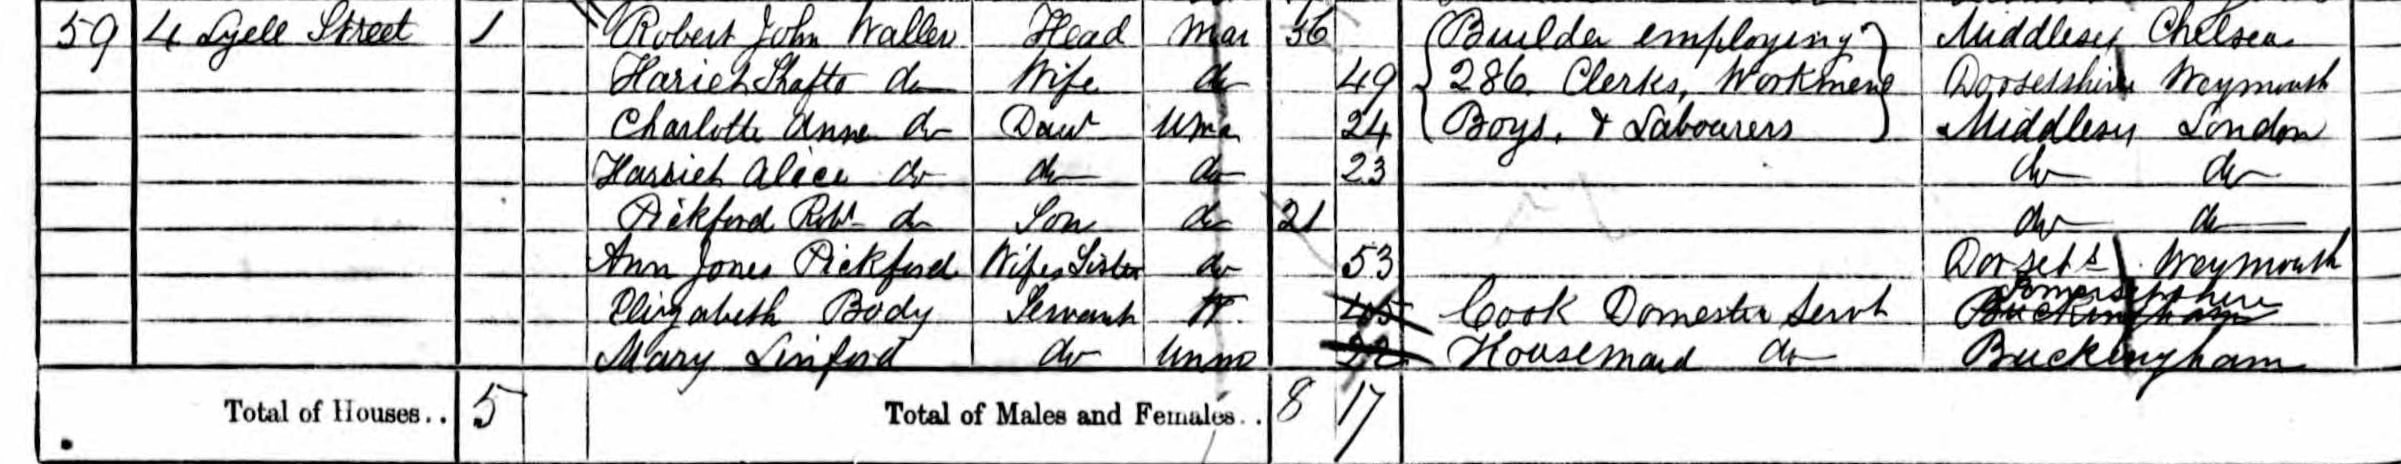 59 4 Lyell Street 1 Robert John Waller Head Mar 56 Builder employing Middlesex Chelsea
Hariet Shafto do Wife do 49 286 Clerks, Workmen Dorsetshire Weymouth
Charlotte Anne do Daur Unm 24 Boys, & Labourers Middlesex London
Harriet Alice do do do 23 do do
Pickford Robt do Son do 21 do do
Ann Jones Pickford Wifes Sister do 53 Dorsets Weymouth
Somersetshire
Elizabeth Body Servant W. 45 Cook Domestic Servt Buckingham
Mary Linford do Unm 22 Housemaid do Buckingham
Total of Houses.. 5 Total of Males and Females.. 8 17